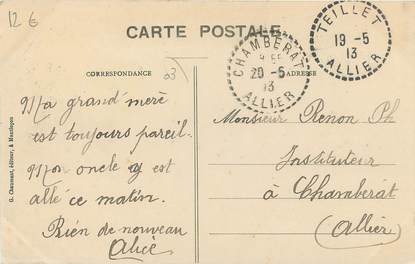 12 €
CARTE POSTALE
TEILLET
19 -5
13
ALLIER
CHAMBERAT
20 -5
13
ALLIER
CORRESPONDANCE
ADRESSE
Ma grand'mère
est toujours pareil.
Mon oncle y est
allé ce matin.
Rien de nouveau
Alice
Monsieur Renon Ph
Instituteur
à Chamberat
(Allier)
G. Chaumont, éditeur, à Montluçon